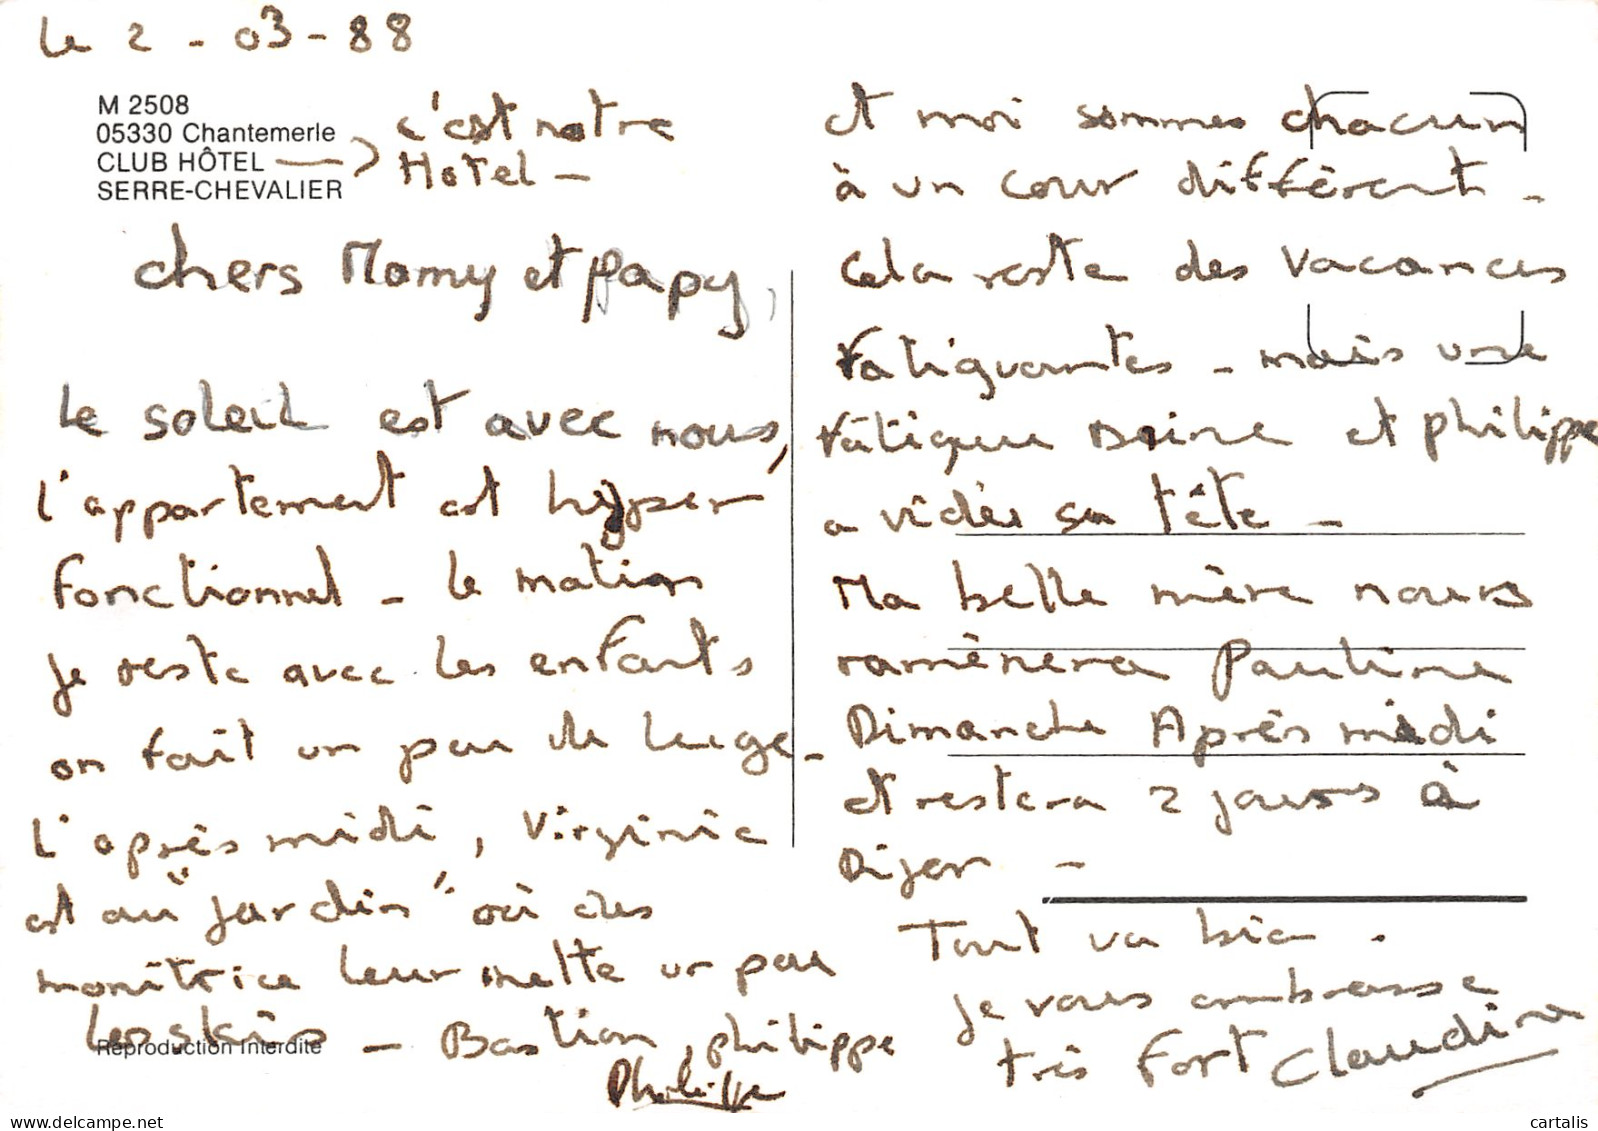 le 2 - 03 - 88
M 2508
05330 Chantemerle
CLUB HÔTEL
SERRE-CHEVALIER
c'est notre
Hotel -
chers Mamy et papy,
le soleil est avec nous,
l'appartement est hyper
fonctionnel - le matin
je reste avec les enfants
on fait un peu de luge -
l'après midi, Virginie
est au "jardin" où des
monitrice leur mette un peu
les skis - Bastian, philippe
Philippe
Reproduction Interdite
et moi sommes chacun
à un cour différent -
Cela reste des vacances
fatiguantes - mais une
fatigue saine et philippe
a vidée sa tête -
Ma belle mère nous
ramènera Pauline
Dimanche Après midi
et restera 2 jours à
Dijon -
Tout va bien.
je vous embrasse
très fort Claudine
cartalis